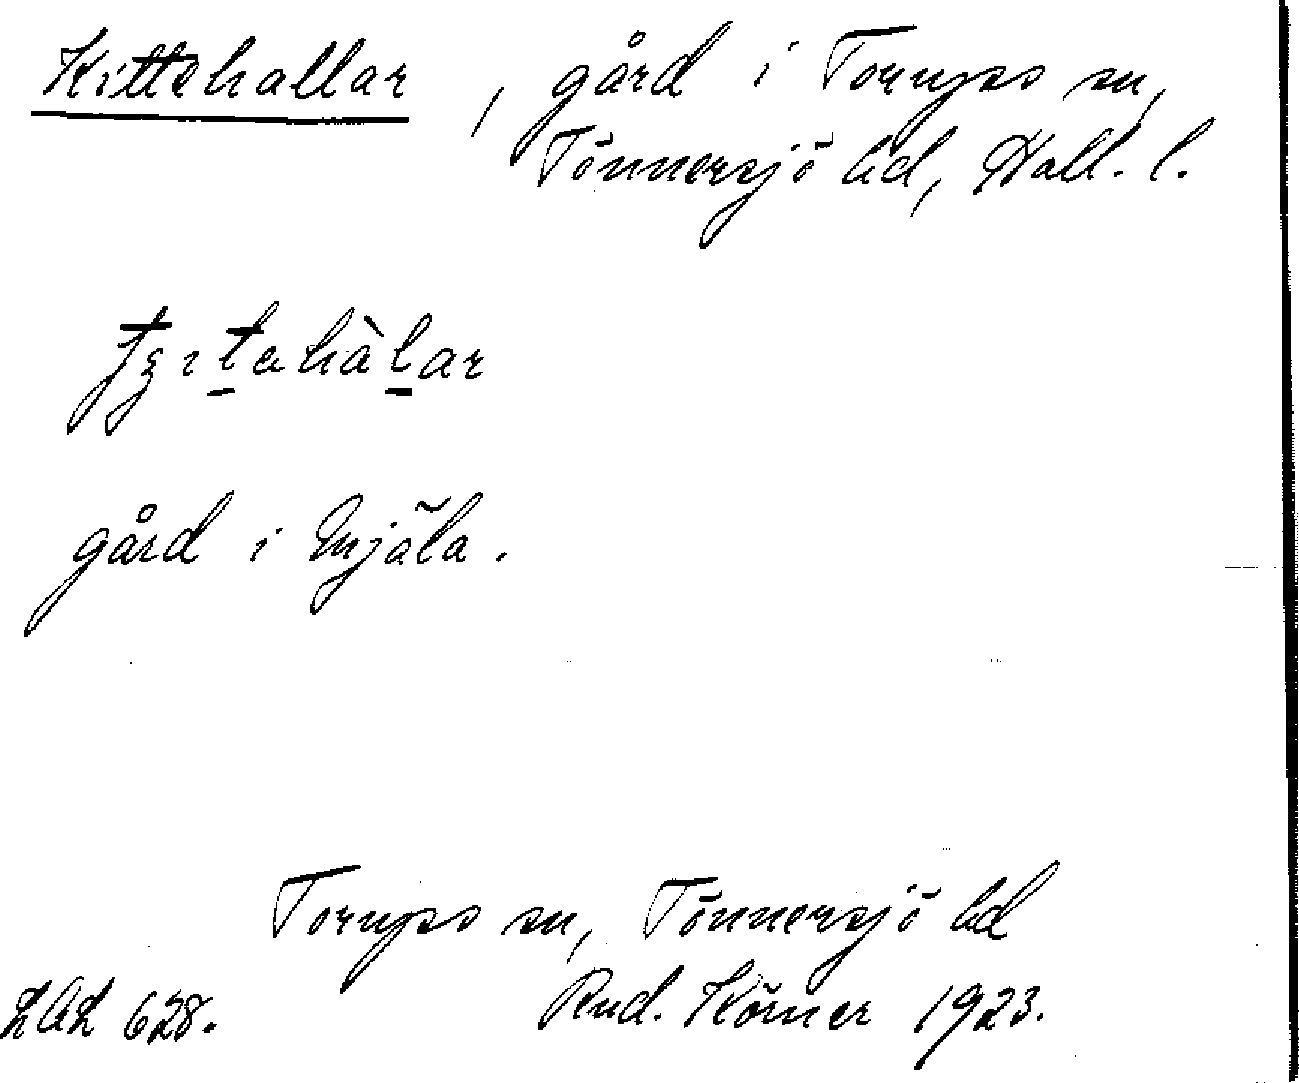 Kittehallar, gård i Torups sn,
Tönnersjö hd, Hall. l.
gård i Mjäla.
Torups sn, Tönnersjö hd
LAL 628. Rud. Körner 1923.